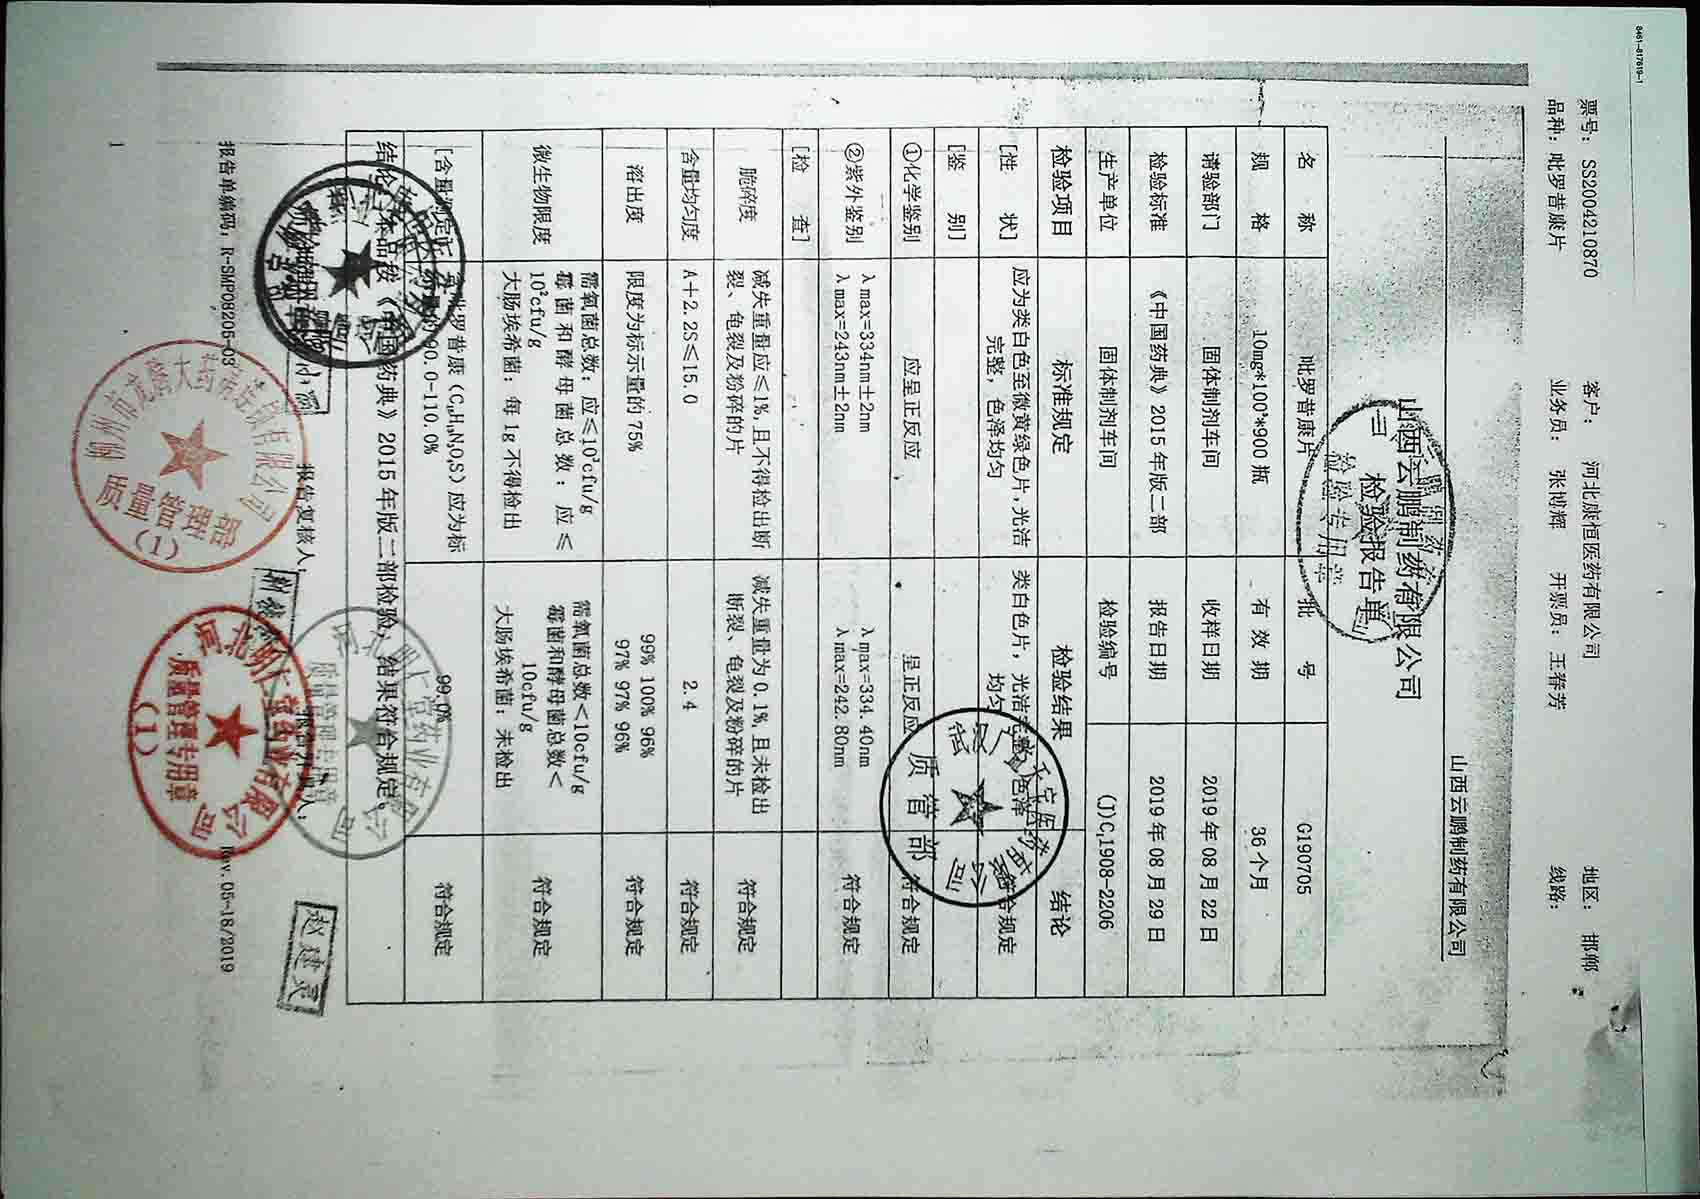 8461-817619-1
票号: SS2004210870 客户: 河北康恒医药有限公司 地区: 邯郸
品种: 吡罗昔康片 业务员: 张博辉 开票员: 王春芳 线路:
山西云鹏制药有限公司
山西云鹏制药有限公司
检验报告单
检验专用章
名 称 吡罗昔康片 批 号 G190705
规 格 10mg*100*800瓶 有 效 期 36个月
请验部门 固体制剂车间 收样日期 2019年08月22日
检验标准 《中国药典》2015年版二部 报告日期 2019年08月29日
生产单位 固体制剂车间 检验编号 (J)C,1908-2206
检验项目 标准规定 检验结果 结论
[性 状] 应为类白色至微黄绿色片,光洁 类白色片,光洁完整,色泽 符合规定
完整,色泽均匀 均匀
[鉴 别]
①化学鉴别 应呈正反应 呈正反应 符合规定
②紫外鉴别 λmax=334nm±2nm λmax=334.40nm 符合规定
λmax=243nm±2nm λmax=242.80nm
[检 查]
脆碎度 减失重量应≤1%,且不得检出断 减失重量为0.1%,且未检出 符合规定
裂、龟裂及粉碎的片 断裂、龟裂及粉碎的片
含量均匀度 A+2.2S≤15.0 2.4 符合规定
溶出度 限度为标示量的75% 99% 100% 96% 符合规定
97% 97% 96%
微生物限度 需氧菌总数:应≤10³cfu/g 需氧菌总数<10cfu/g 符合规定
霉菌和酵母菌总数:应≤ 霉菌和酵母菌总数<
10²cfu/g 10cfu/g
大肠埃希菌:每1g不得检出 大肠埃希菌:未检出
[含量测定] 含吡罗昔康(C₁₅H₁₃N₃O₄S)应为标 99.0% 符合规定
示量的90.0-110.0%
结论:本品按《中国药典》2015年版二部检验,结果符合规定。
报告复核人:
赵建灵
报告单编码: R-SMP08205-03 Rev. 05-18/2019
1
质管部
河北明仁堂药业有限公司
质量管理专用章
河北明仁堂药业有限公司
质量管理专用章
(1)
柳州市龙腾大药房连锁有限公司
质量管理部
(1)